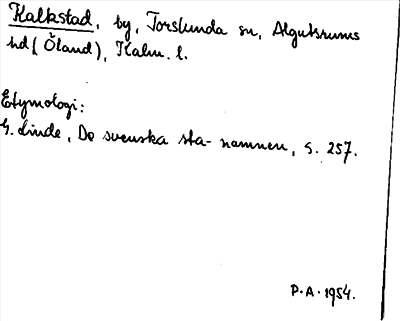 Kalkstad, by, Torslunda sn, Algutsrums
hd (Öland), Kalm. l.
Etymologi:
G. Linde, De svenska sta-namnen, s. 257.
P.A. 1954.